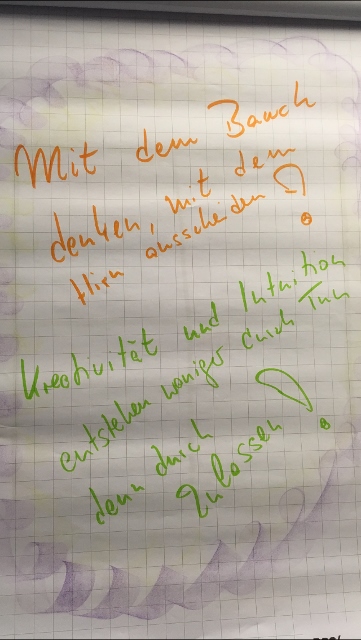 Mit dem Bauch
denken, mit dem
Hirn ausscheiden!
Kreativität und Intuition
entstehen weniger durch Tun
denn durch
Zulassen!